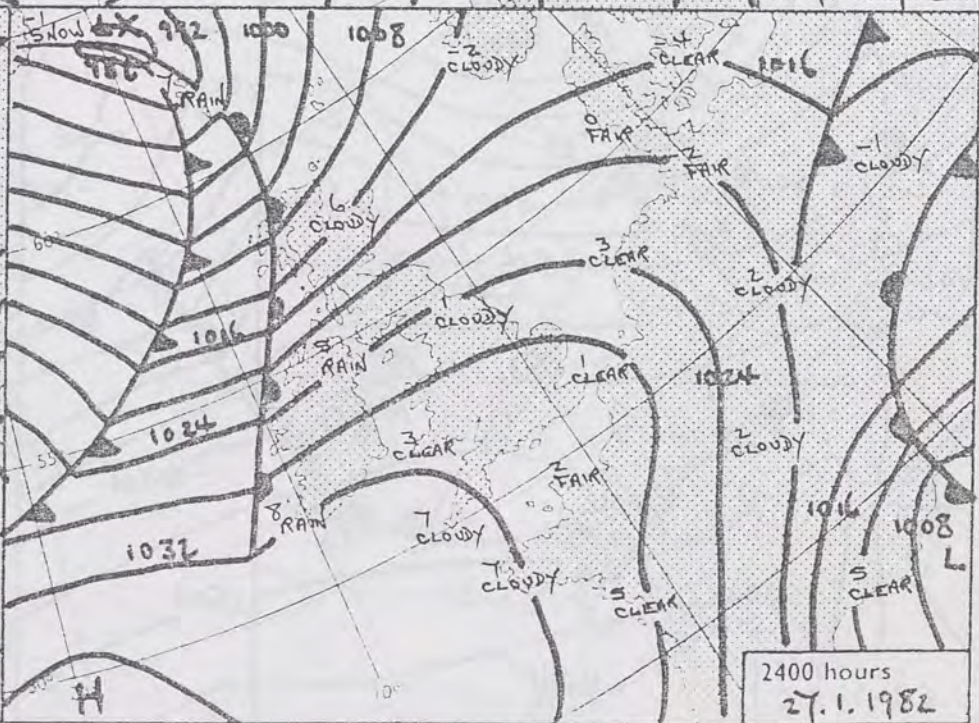 SNOW 992 1000 1008
-2
CLOUDY
-4
CLEAR
1016
RAIN
0
FAIR
2
FAIR
-1
CLOUDY
6
CLOUDY
60
3
CLEAR
2
CLOUDY
1
CLOUDY
1016
8
RAIN
1
CLEAR
1024
1024
3
CLEAR
2
CLOUDY
55
2
FAIR
8
RAIN
7
CLOUDY
1016
1008
L
1032
7
CLOUDY
5
CLEAR
5
CLEAR
H
10°
2400 hours
27.1.1982